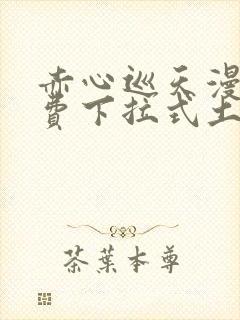 赤心巡天漫
費下拉式土
茶葉本尊